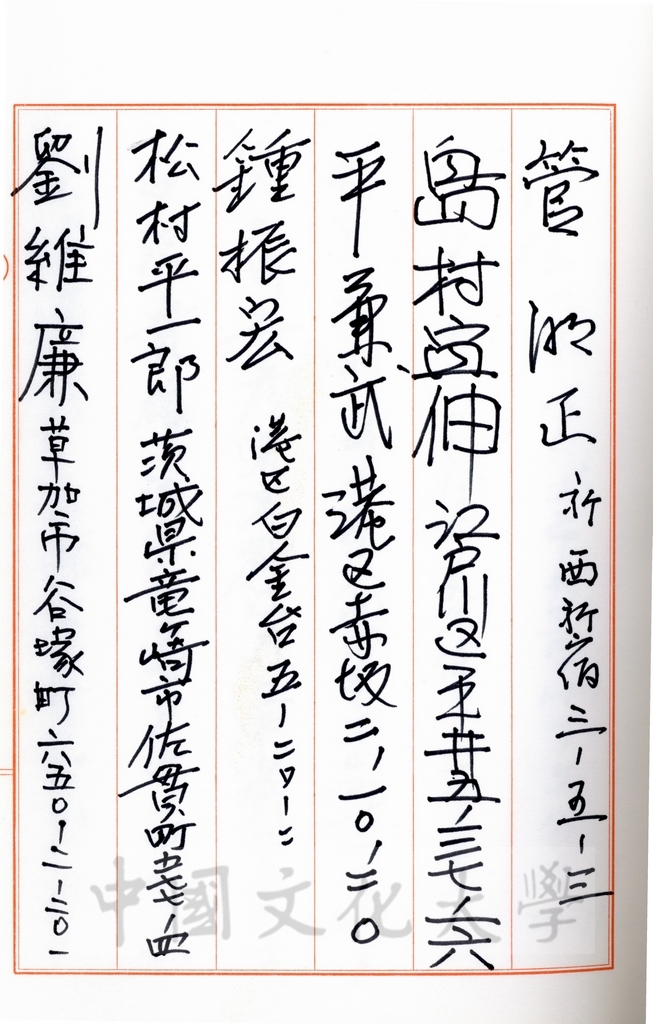 管 湖正 新 西新宿三-五-三
島村宜伸 江戸川区平井五-三七-六
平兼武 港区赤坂二-一〇-二〇
鍾振宏 港区白金台五-二〇-二
松村平一郎 茨城県竜ヶ崎市佐貫町
劉維廉 草加市谷塚町六五〇-二-二〇一
中國文化大學